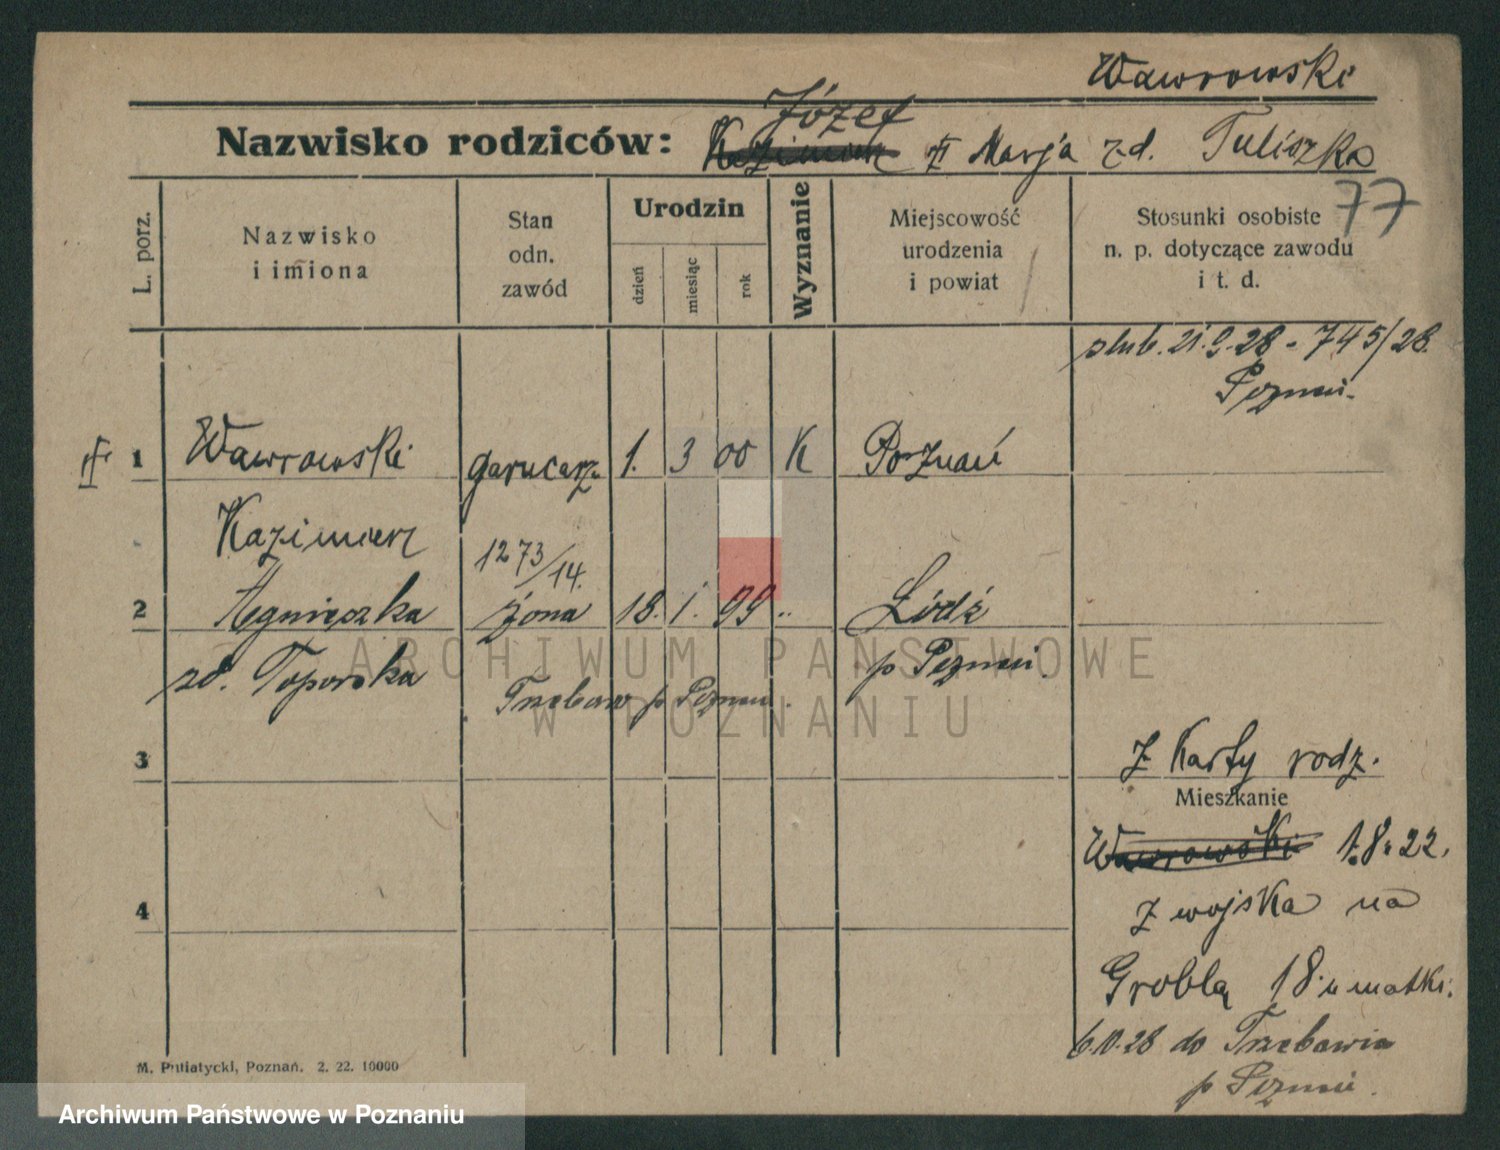 Wawrowski
Józef
Nazwisko rodziców: Kazimierz Marja zd. Tuliszka
77
L. porz.
Nazwisko
i imiona
Stan
odn.
zawód
Urodzin
dzień
miesiąc
rok
Wyznanie
Miejscowość
urodzenia
i powiat
Stosunki osobiste
n. p. dotyczące zawodu
i t. d.
ślub. 21.9.28 - 745/28.
Poznań.
1 Wawrowski garncarz 1. 3 00 K Poznań
Kazimierz 1273/14.
2 Agnieszka żona 18. 1. 99 " Łódź
zd. Toporska p Poznań.
Trzebaw p Poznań.
3
Z Karty rodz.
Mieszkanie
Wawrowski 1.8.22.
4
z wojska na
Groblą 18 u matki.
6.10.28 do Trzebawia
p Poznań.
M. Putiatycki, Poznań. 2. 22. 10000
ARCHIWUM PAŃSTWOWE
W POZNANIU
Archiwum Państwowe w Poznaniu